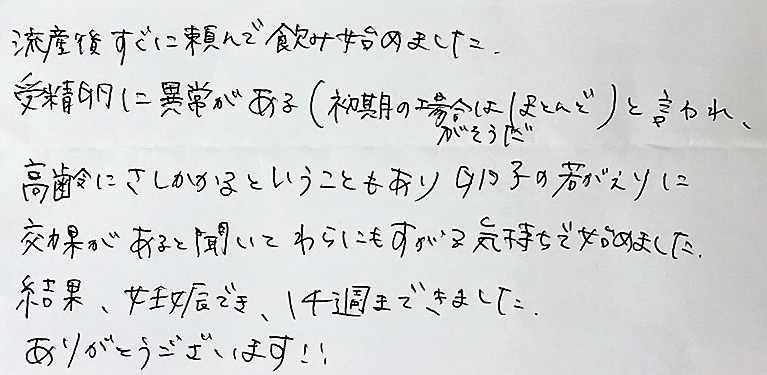 流産後すぐに頼んで飲み始めました.
受精卵に異常がある(初期の場合はほとんど)と言われ、
がそうだ
高齢にさしかかるということもあり卵子の若がえりに
効果があると聞いてわらにもすがる気持ちで始めました.
結果、妊娠でき、14週まできました.
ありがとうございます!!